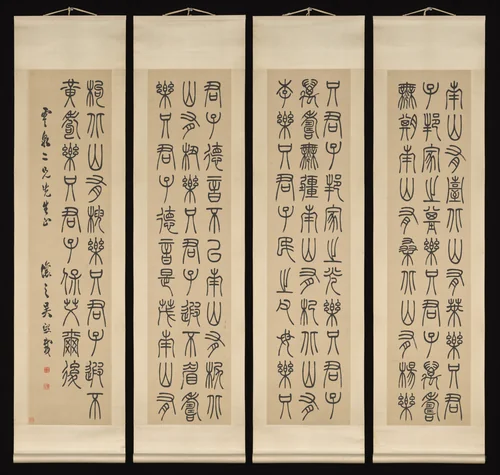 南山有臺北山有萊樂只君
子邦家之基樂只君子萬壽
無期南山有桑北山有楊樂
只君子邦家之光樂只君子
萬壽無疆南山有杞北山有
李樂只君子民之父母樂只
君子德音不已南山有栲北
山有杻樂只君子遐不眉壽
樂只君子德音是茂南山有
枸北山有楰樂只君子遐不
黃耇樂只君子保艾爾後
二兄先生正
讓之吳熙載